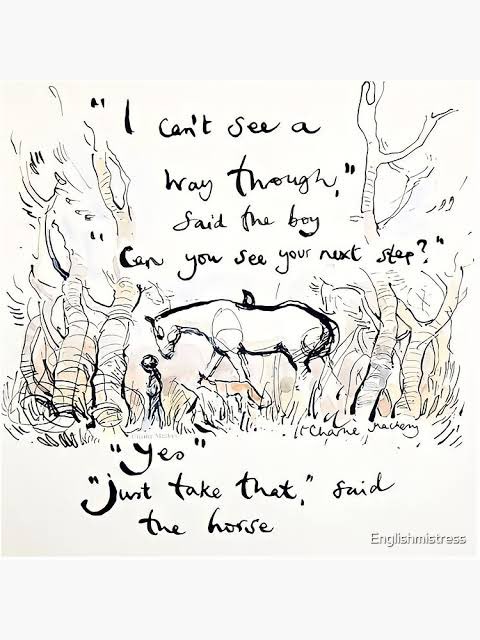 "I can't see a
way through,"
said the boy
"Can you see your next step?"
Charlie Mackesy
"Yes"
"just take that," said
the horse
Englishmistress